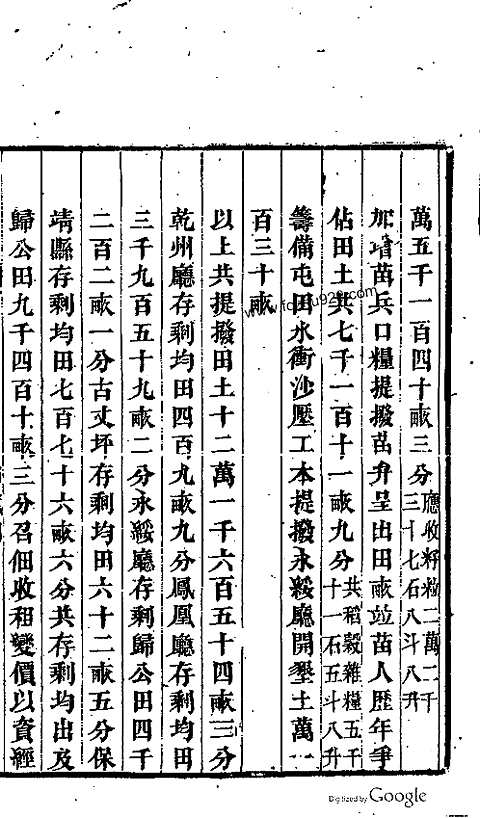 萬五千一百四十畝三分應收籽粒二萬二千三十七石八斗八升
加增苗兵口糧提撥苗弁呈出田畝竝苗人歷年爭
佔田土共七千一百十一畝九分共稻穀雜糧五千十一石五斗八升
籌備屯田水衝沙壓工本提撥永綏廳開墾土萬一
百三十畝
以上共提撥田土十二萬一千六百五十四畝三分
乾州廳存剩均田四百九畝九分鳳凰廳存剩均田
三千九百五十九畝二分永綏廳存剩歸公田四千
二百二畝一分古丈坪存剩均田六十二畝五分保
靖縣存剩均田七百七十六畝六分共存剩均出及
歸公田九千四百十畝三分召佃收租變價以資經
Digitized by Google